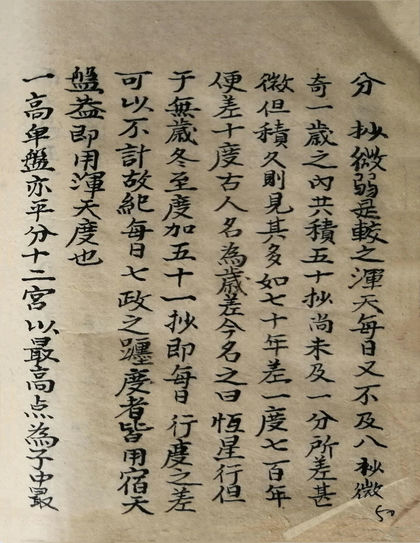 分 抄微弱是較之渾天每日又不及八秒微
奇一歲之內共積五十抄尚未及一分所差甚
微但積久則見其多如七十年差一度七百年
便差十度古人名為歲差今名之曰恆星行但
于無歲冬至度加五十一抄即每日行度之差
可以不計故紀每日七政之躔度者皆用宿天
盤益即用渾天度也
一高卑盤亦平分十二宮以最高点為子中最
50